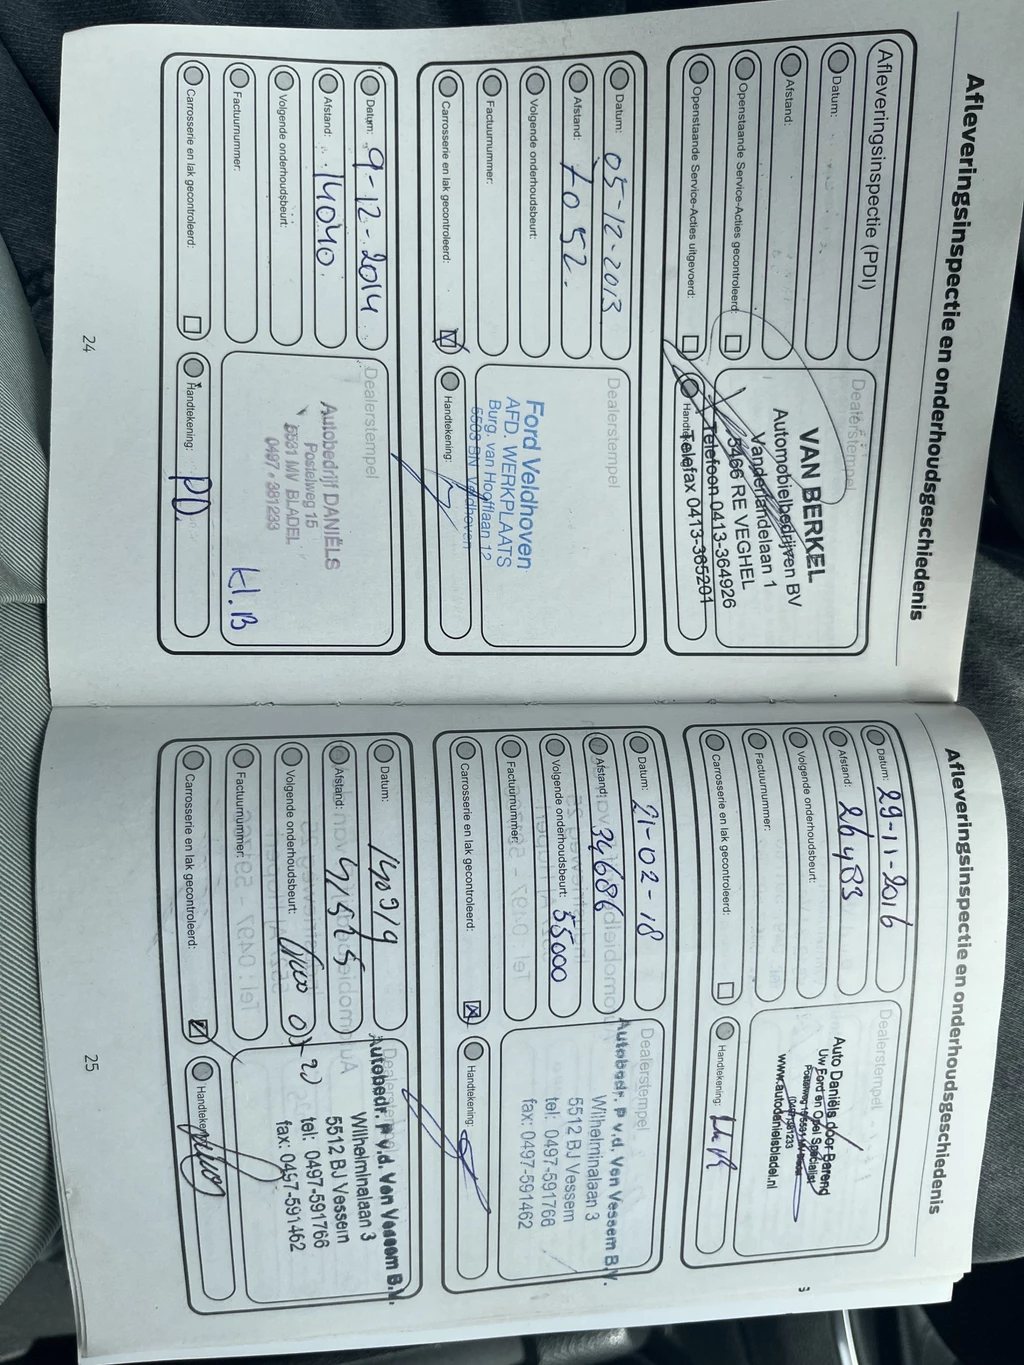 Afleveringsinspectie en onderhoudsgeschiedenis
Afleveringsinspectie (PDI)
Datum:
Afstand:
Openstaande Service-Acties gecontroleerd:
Openstaande Service-Acties uitgevoerd:
Dealerstempel
VAN BERKEL
Automobielbedrijven BV
Vanderlandelaan 1
5466 RE VEGHEL
Telefoon 0413-364926
Telefax 0413-365201
Datum: 05-12-2013
Afstand: 7052.
Volgende onderhoudsbeurt:
Factuurnummer:
Carrosserie en lak gecontroleerd:
Dealerstempel
Ford Veldhoven
AFD. WERKPLAATS
Burg. van Hoofflaan 12
5503 BN Veldhoven
Handtekening:
Datum: 9-12-2014
Afstand: 14040.
Volgende onderhoudsbeurt:
Factuurnummer:
Carrosserie en lak gecontroleerd:
Dealerstempel
Autobedrijf DANIËLS
Postelweg 15
5531 MV BLADEL
0497 - 381233
kl. B
Handtekening: PD.
24
Afleveringsinspectie en onderhoudsgeschiedenis
Datum: 29-11-2016
Afstand: 26483
Volgende onderhoudsbeurt:
Factuurnummer:
Carrosserie en lak gecontroleerd:
Dealerstempel
Auto Daniëls door Berend
Uw Ford en Opel Specialist
www.autodanielsbladel.nl
Handtekening:
Datum: 21-02-18
Afstand: 34686
Volgende onderhoudsbeurt: 55000
Factuurnummer:
Carrosserie en lak gecontroleerd:
Dealerstempel
Autobedr. P v.d. Ven Vessem B.V.
Wilhelminalaan 3
5512 BJ Vessem
tel: 0497-591766
fax: 0497-591462
Handtekening:
Datum: 140919
Afstand: 45125
Volgende onderhoudsbeurt:
Factuurnummer:
Carrosserie en lak gecontroleerd:
Dealerstempel
Autobedr. P v.d. Ven Vessem B.V.
Wilhelminalaan 3
5512 BJ Vessem
tel: 0497-591766
fax: 0497-591462
Handtekening:
25